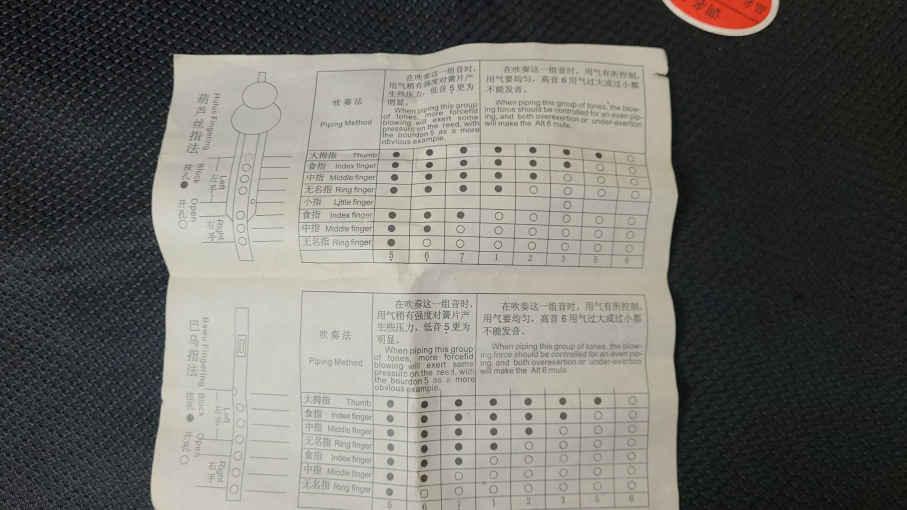 葫芦丝指法
Hulusi Fingering
按孔● Block
开孔○ Open
左手 Left
右手 Right
吹奏法
Piping Method
在吹奏这一组音时,
用气稍有强度对簧片产
生些压力, 低音 5 更为
明显。
When piping this group
of tones, more forcefid
blowing will exert some
pressure on the reed, with
the bourdon 5 as a more
obvious example.
在吹奏这一组音时, 用气有所控制,
用气要均匀, 高音 6 用气过大或过小都
不能发音。
When piping this group of tones, the blow-
ing force should be controlled for an even pip-
ing, and both overexertion or under-exertion
will make the Alt 6 mute.
大拇指 Thumb ● ● ● ● ● ● ● ○
食指 Index finger ● ● ● ● ● ● ○ ○
中指 Middle finger ● ● ● ● ● ○ ○ ○
无名指 Ring finger ● ● ● ● ○ ○ ○ ○
小指 Little finger ○
食指 Index finger ● ● ● ○ ○ ○ ○ ○
中指 Middle finger ● ● ○ ○ ○ ○ ○ ○
无名指 Ring finger ● ○ ○ ○ ○ ○ ○ ○
5 6 7 1 2 3 5 6
巴乌指法
Bawu Fingering
按孔● Block
开孔○ Open
左手 Left
右手 Right
吹奏法
Piping Method
在吹奏这一组音时,
用气稍有强度对簧片产
生些压力, 低音 5 更为
明显。
When piping this group
of tones, more forcefid
blowing will exert some
pressure on the reed, with
the bourdon 5 as a more
obvious example.
在吹奏这一组音时, 用气有所控制,
用气要均匀, 高音 6 用气过大或过小都
不能发音。
When piping this group of tones, the blow-
ing force should be controlled for an even pip-
ing, and both overexertion or under-exertion
will make the Alt 6 mute.
大拇指 Thumb ● ● ● ● ● ● ● ○
食指 Index finger ● ● ● ● ● ● ○ ○
中指 Middle finger ● ● ● ● ● ○ ○ ○
无名指 Ring finger ● ● ● ● ○ ○ ○ ○
食指 Index finger ● ● ● ○ ○ ○ ○ ○
中指 Middle finger ● ● ○ ○ ○ ○ ○ ○
无名指 Ring finger ● ○ ○ ○ ○ ○ ○ ○
5 6 7 1 2 3 5 6